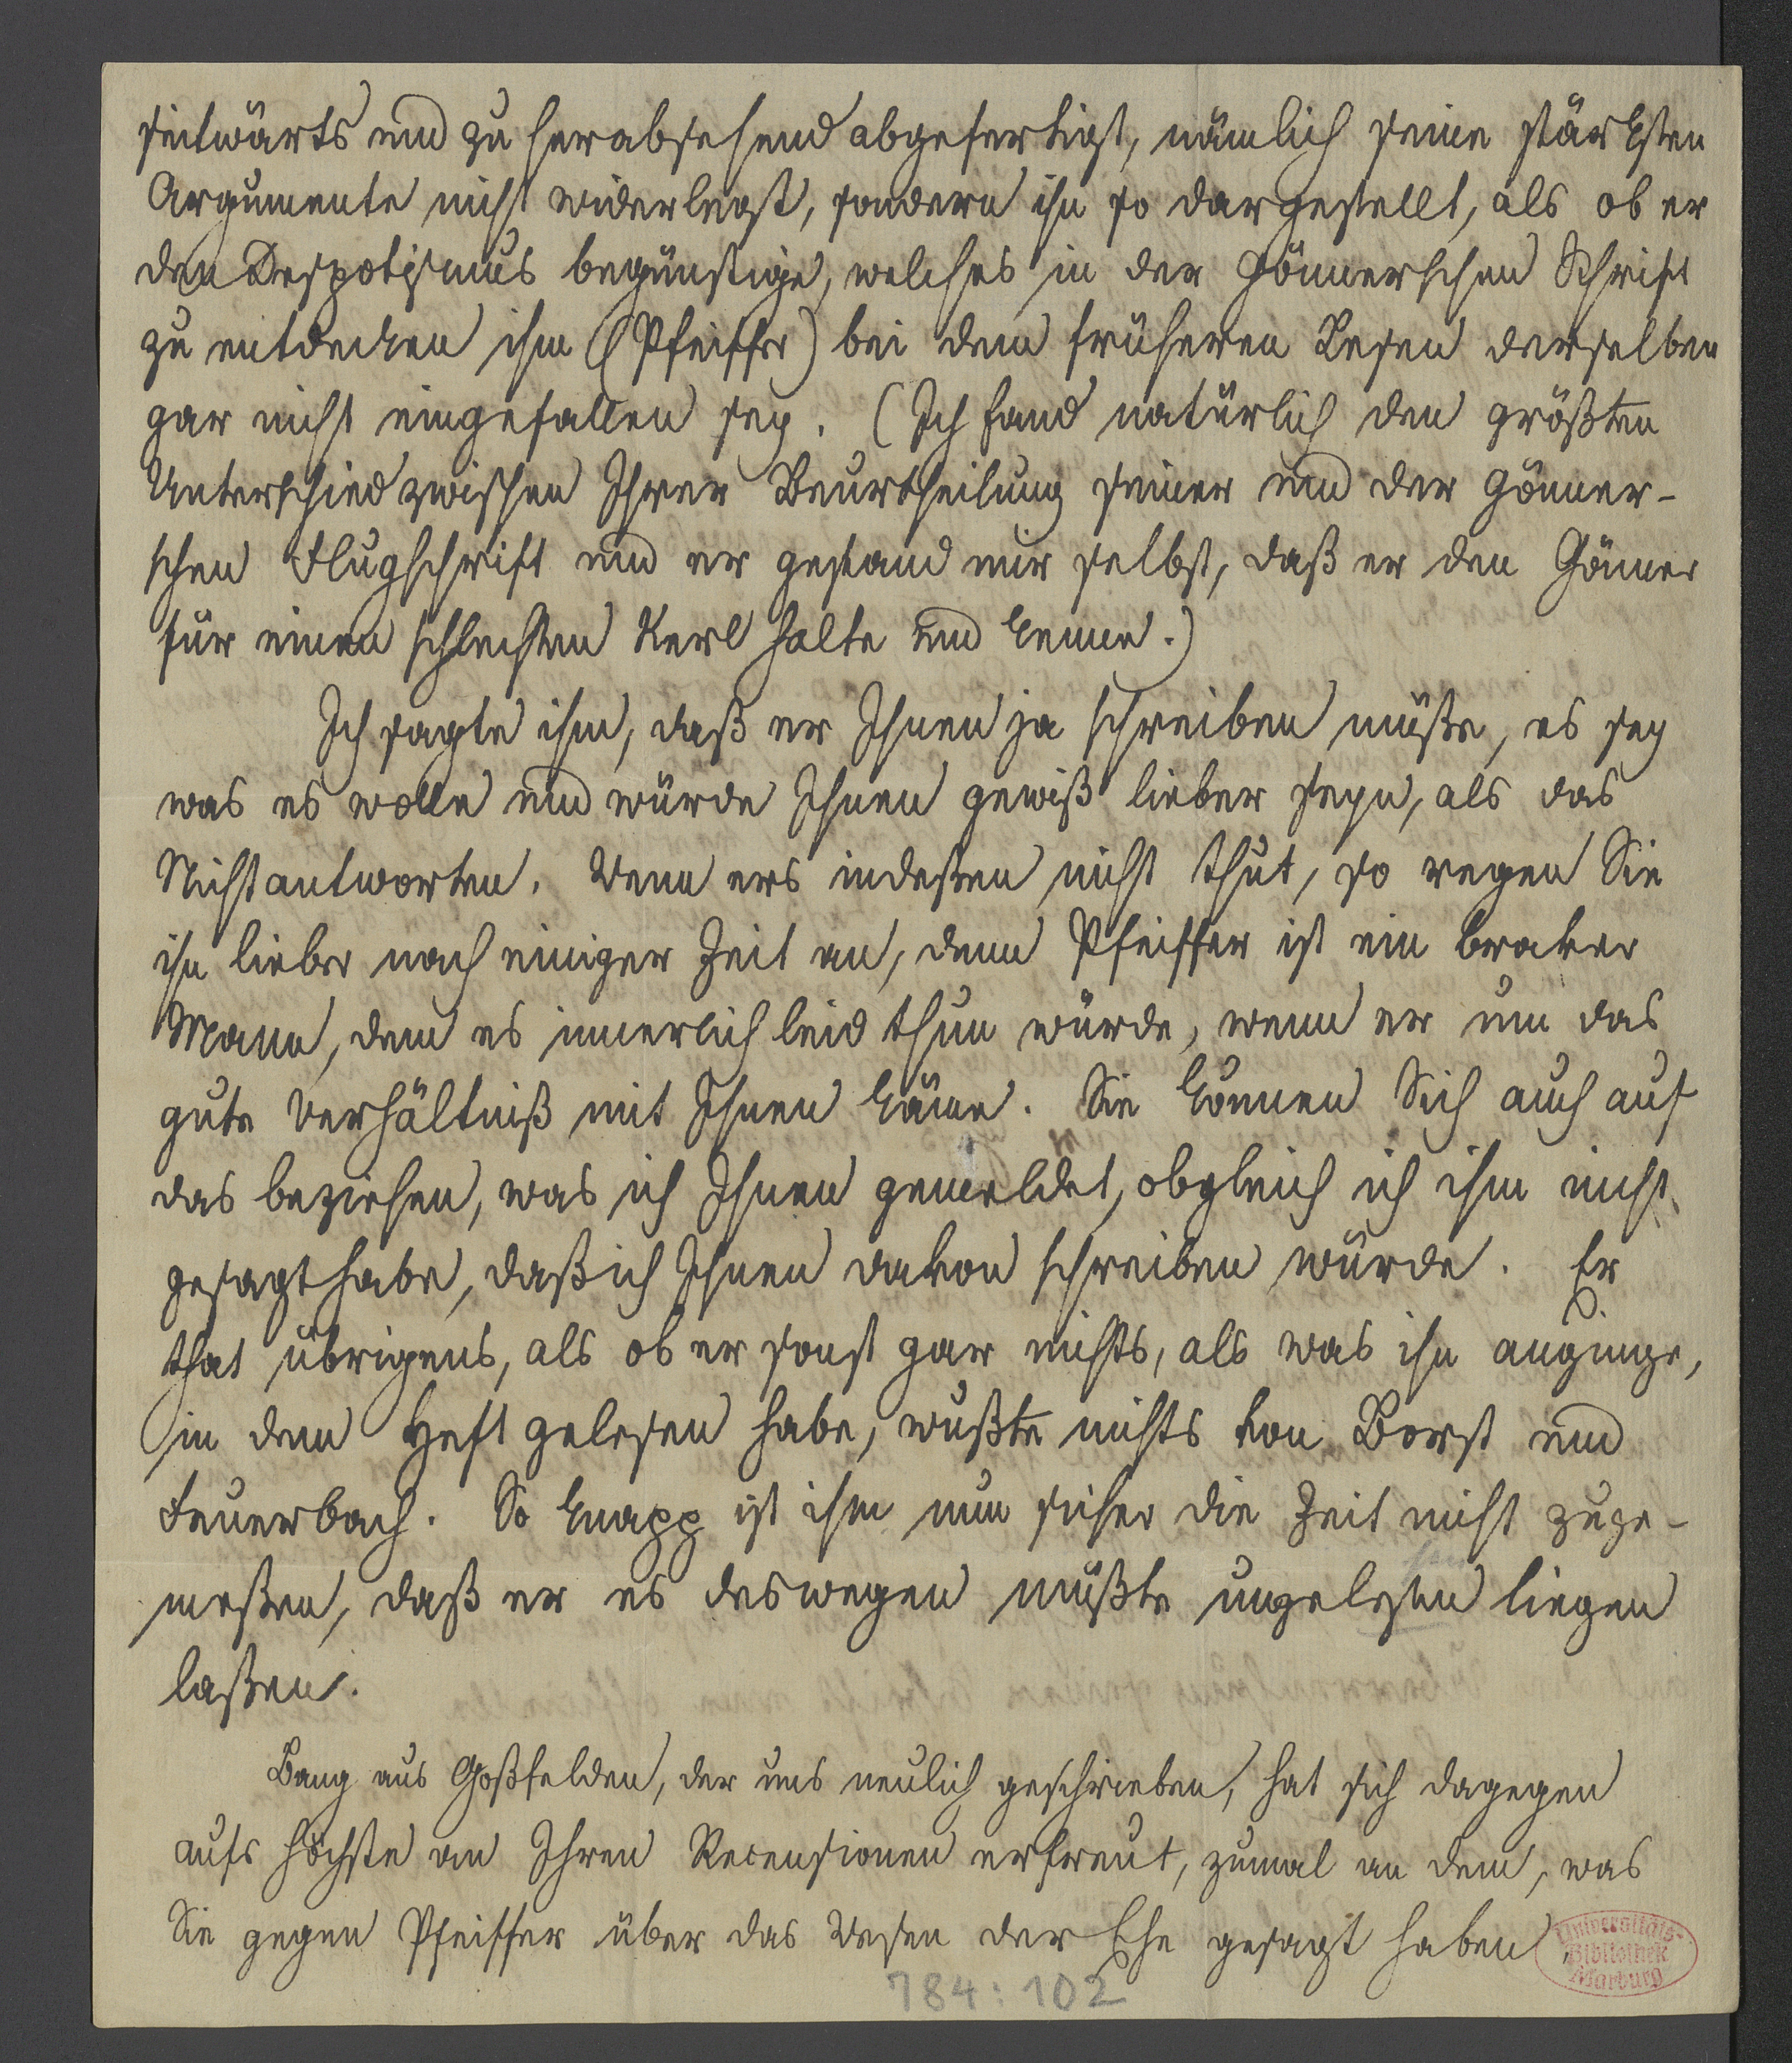 seitwärts und zu herabsehend abgefertigt, nämlich seine stärksten
Argumente nicht widerlegt, sondern ihn so dargestellt, als ob er
den Despotismus begünstige, welches in der Gönnerschen Schrift
zu entdecken ihm (Pfeiffer) bei dem früheren Lesen derselben
gar nicht eingefallen sey. (Ich fand natürlich den größten
Unterschied zwischen Ihrer Beurtheilung seiner und der Gönner-
schen Flugschrift und er gestand mir selbst, daß er den Gönner
für einen schlechten Kerl halte und kenne.)
Ich sagte ihm, daß er Ihnen ja schreiben müße, es sey
was es wolle und würde Ihnen gewiß lieber seyn, als das
Nichtantworten. Wenn ers indeßen nicht thut, so regen Sie
ihn lieber nach einiger Zeit an, denn Pfeiffer ist ein braver
Mann, dem es innerlich leid thun würde, wenn er um das
gute Verhältniß mit Ihnen käme. Sie können Sich auch auf
das beziehen, was ich Ihnen gemeldet, obgleich ich ihm nicht
gesagt habe, daß ich Ihnen davon schreiben würde. Er
that übrigens, als ob er sonst gar nichts, als was ihn anginge,
in dem Heft gelesen habe, wußte nichts von Borst und
Feuerbach. So knapp ist ihm nun sicher die Zeit nicht zuge-
meßen, daß er es deswegen müßte ungelesen liegen
laßen.
Bang aus Goßfelden, der uns neulich geschrieben, hat sich dagegen
aufs höchste an Ihren Recensionen erfreut, zumal an dem, was
Sie gegen Pfeiffer über das Wesen der Ehe gesagt haben.
Universitäts-
Bibliothek
Marburg
784:102